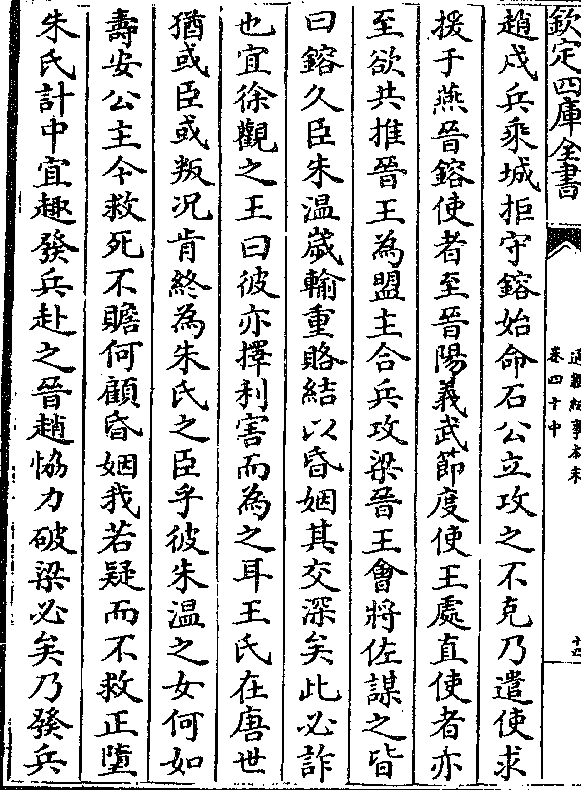 欽定四庫全書
通鑑紀事本末
卷四十中
趙戍兵乘城拒守鎔始命石公立攻之不克乃遣使求
援于燕晉鎔使者至晉陽義武節度使王處直使者亦
至欲共推晉王為盟主合兵攻梁晉王會將佐謀之皆
曰鎔久臣朱温嵗輸重賂結以昏姻其交深矣此必詐
也宜徐觀之王曰彼亦擇利害而為之耳王氏在唐世
猶或臣或叛况肯終為朱氏之臣乎彼朱温之女何如
壽安公主今救死不贍何顧昏姻我若疑而不救正墮
朱氏計中宜趣發兵赴之晉趙恊力破梁必矣乃發兵